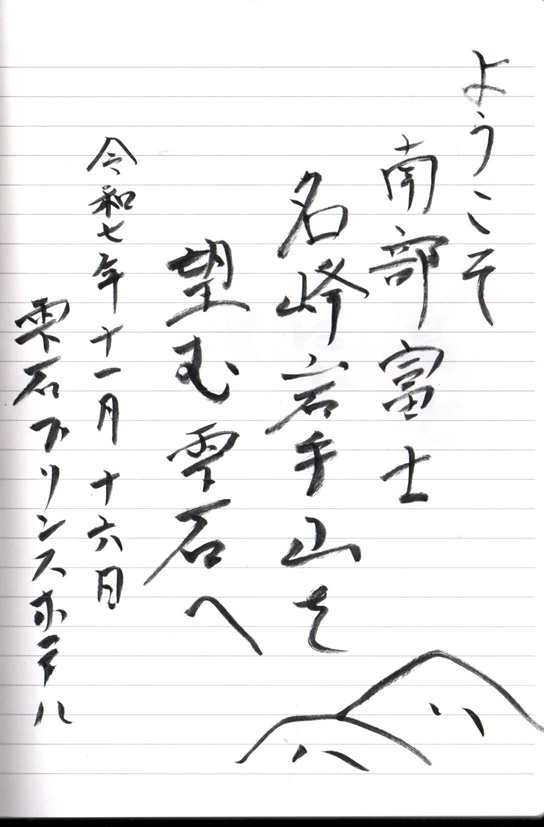 ようこそ
南部富士
名峰岩手山を
望む雫石へ
令和七年十一月十六日
雫石プリンスホテル